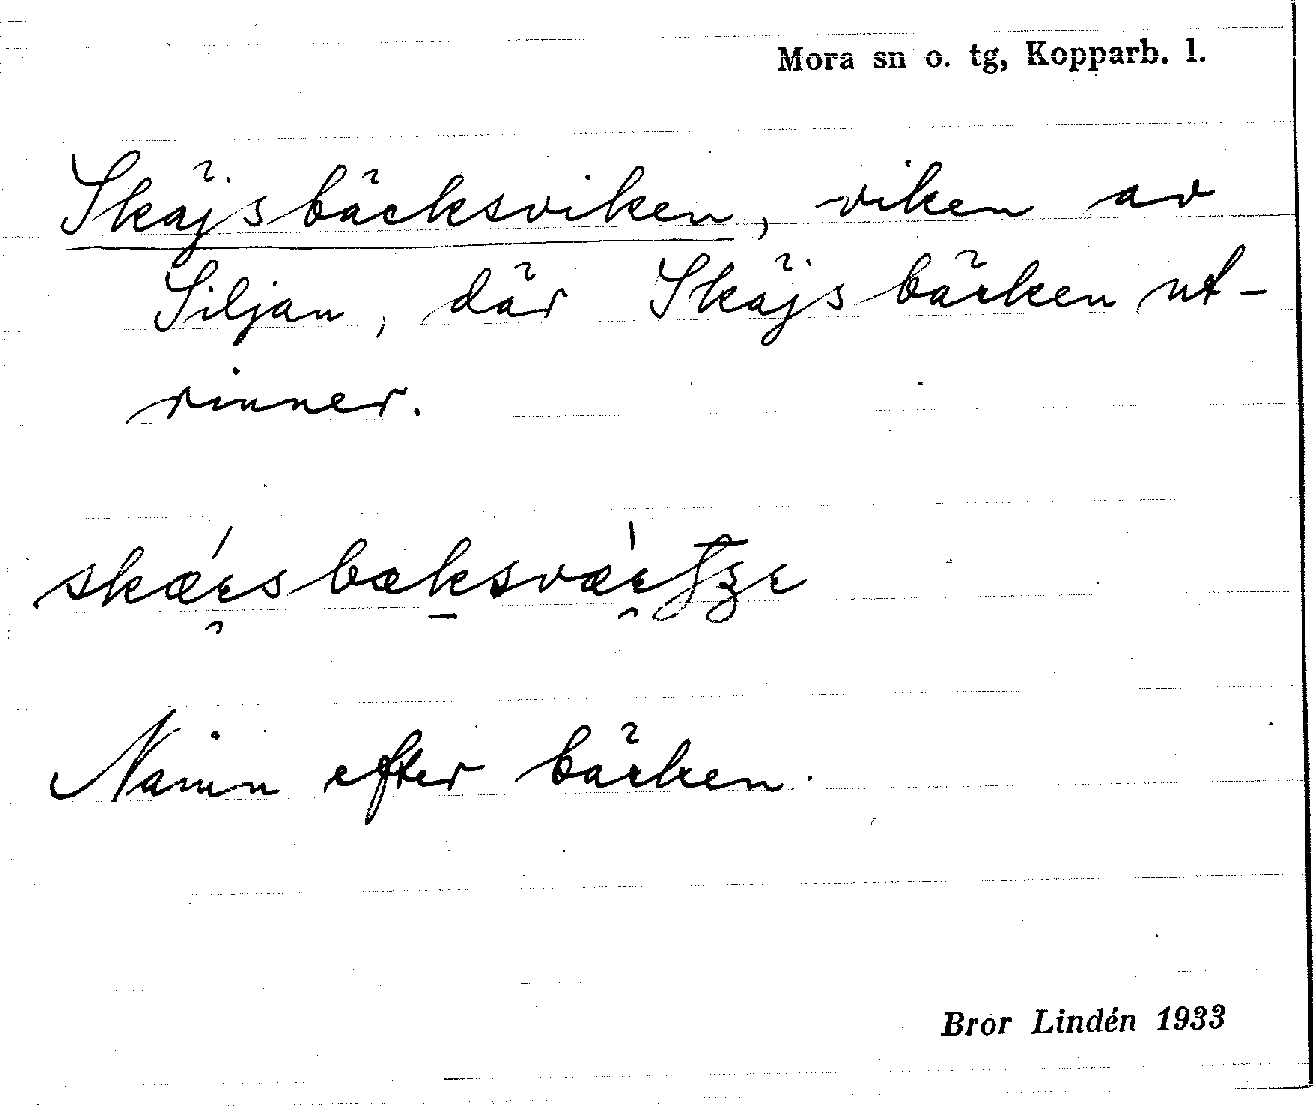 Mora sn o. tg, Kopparb. l.
Skäjsbäcksviken, viken av
Siljan, där Skäjsbäcken ut-
rinner.
Namn efter bäcken.
Bror Lindén 1933